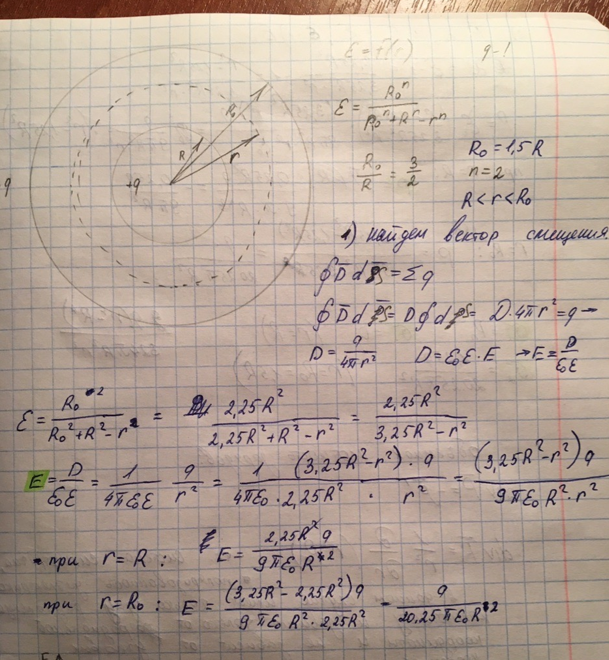 E = f(r) q-1
ε = R₀ⁿ / (R₀ⁿ + Rⁿ - rⁿ)
R₀/R = 3/2
R₀ = 1,5R
n = 2
R < r < R₀
R₀
R
r
q
+q
1) найдем вектор смещения
∮D̅ dS̅ = Σq
∮D̅ dS̅ = D∮dS = D·4πr² = q →
D = q / (4πr²) D = ε₀ε·E → E = D / (ε₀ε)
ε = R₀² / (R₀² + R² - r²) = 2,25R² / (2,25R² + R² - r²) = 2,25R² / (3,25R² - r²)
E = D / (ε₀ε) = 1 / (4πε₀ε) q / r² = 1 / (4πε₀·2,25R²) · (3,25R² - r²)·q / r² = (3,25R² - r²)q / (9πε₀R²·r²)
при r = R : E = 2,25R² q / (9πε₀R²)
при r = R₀ : E = (3,25R² - 2,25R²)q / (9πε₀R²·2,25R²) = q / (20,25πε₀R²)